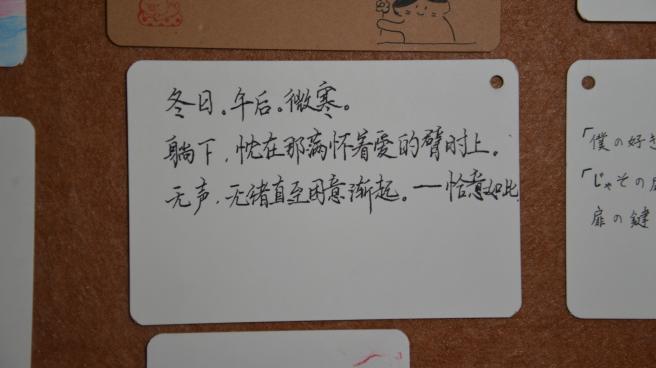 冬日。午后。微寒。
躺下，忱在那满怀着爱的臂肘上。
无声，无绪直至困意渐起。——恰意如此
「僕の好き
「じゃその
扉の鍵